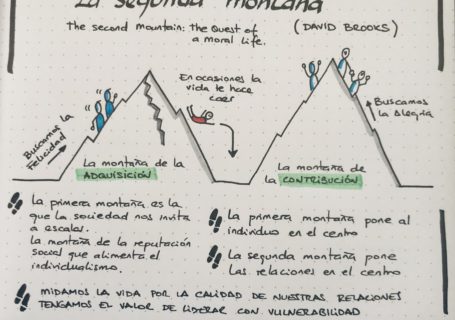 La segunda montaña
The second mountain: The Quest of
a moral Life.
(DAVID BROOKS)
Buscamos la
Felicidad
En ocasiones la
vida te hace
caer
Buscamos
la Alegría
La montaña de la
ADQUISICIÓN
La montaña de
la CONTRIBUCIÓN
La primera montaña es la
que la sociedad nos invita
a escalar.
La montaña de la reputación
social que alimenta el
individualismo.
La primera montaña pone al
individuo en el centro
La segunda montaña pone
las relaciones en el centro
MIDAMOS LA VIDA POR LA CALIDAD DE NUESTRAS RELACIONES
TENGAMOS EL VALOR DE LIDERAR CON VULNERABILIDAD